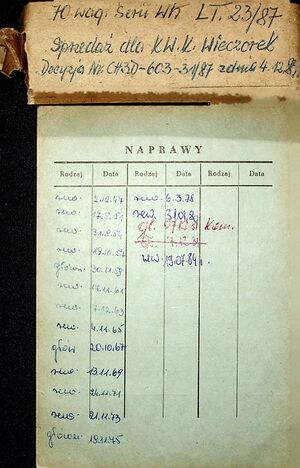 70 wag. Serii Wk LT. 23/87
Sprzedaż dla KWK. Wieczorek
Decyzja Nr CH3D-603-31/87 z dnia 4.12.87
NAPRAWY
Rodzaj Data Rodzaj Data Rodzaj Data
rew. 2.12.47 rew. 6.3.78
rew. 17.5.51 rew. 3.01.81
rew. 31.8.54 gł. 07.12.81 Kom.
rew. 19.10.57 gł. 7.12.81
główn. 30.11.59 rew. 13.07.84r.
rew. 18.11.61
rew. 7.12.63
rew. 4.11.65
głów 20.10.67
rew. 13.11.69
rew. 24.11.71
rew. 21.11.73
główn. 19.11.75